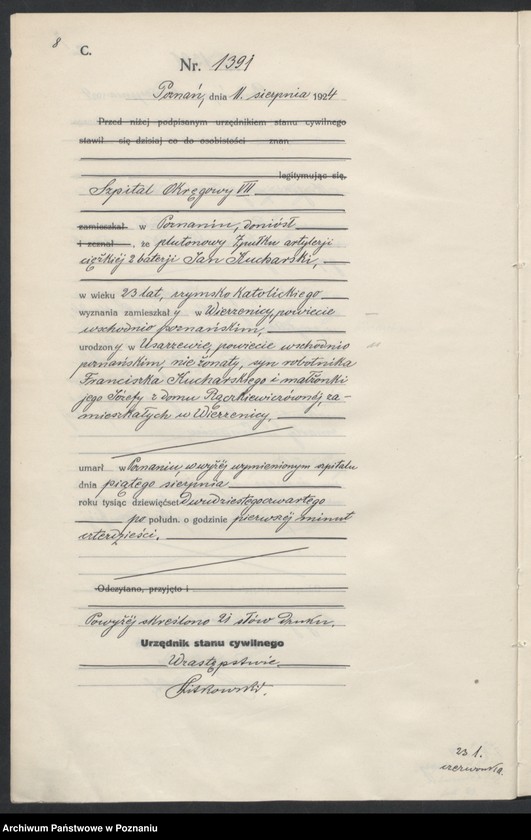 8
C.
Nr. 1391
Poznań, dnia 11. sierpnia 1924
Przed niżej podpisanym urzędnikiem stanu cywilnego
stawił się dzisiaj co do osobistości znan
legitymując się.
Szpital Okręgowy VII
zamieszkał w Poznaniu, doniósł
i zeznał , że plutonowy 7 pułku artylerji
ciężkiéj 2 baterji Jan Kucharski,
w wieku 23 lat, rzymsko katolickiego
wyznania zamieszkały w Wierzenicy, powiecie
wschodnio poznańskim,
urodzony w Usarzewie, powiecie wschodnio
poznańskim, nie żonaty, syn robotnika
Franciszka Kucharskiego i małżonki
jego Józefy z domu za-
mieszkałych w Wierzenicy.
umarł w Poznaniu, w wyżéj wymienionym szpitalu
dnia piątego sierpnia
roku tysiąc dziewięćset dwudziestegoczwartego
po połudn. o godzinie pierwszéj minut
czterdzieści.
Odczytano, przyjęto i
Powyżéj skreślono 21 słów druku.
Urzędnik stanu cywilnego
W zastępstwie.
23 1.
Archiwum Państwowe w Poznaniu